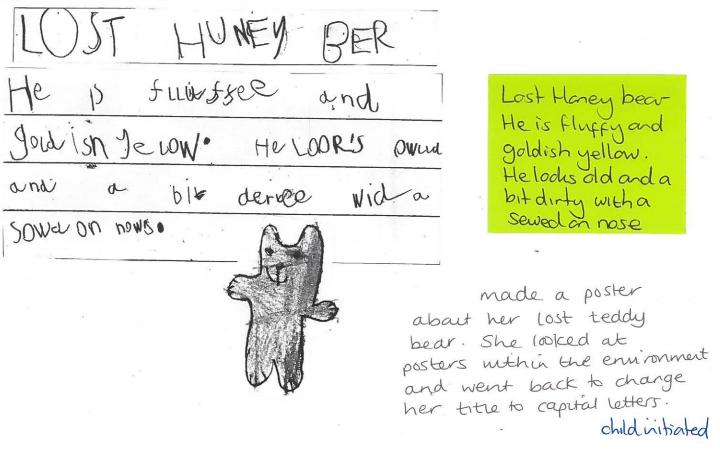 LOST HUNEY BER
He is fluuffee and
goldisn yelow. He LOOR'S owld
and a bit dertee wid a
sowd on nows.
Lost Honey bear
He is fluffy and
goldish yellow.
He looks old and a
bit dirty with a
sewed on nose
made a poster
about her lost teddy
bear. She looked at
posters within the environment
and went back to change
her title to capital letters.
child initiated